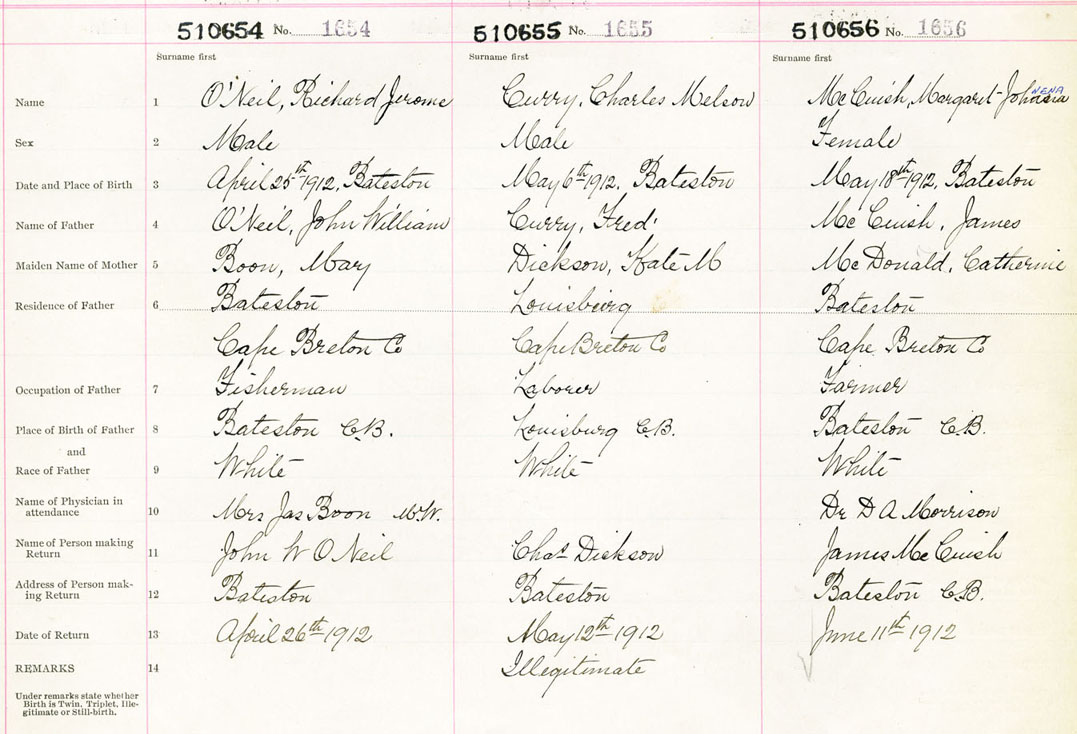 510654 No. 1654 510655 No. 1655 510656 No. 1656
Surname first Surname first Surname first
Name 1 O'Neil, Richard Jerome Curry, Charles Melson McCuish, Margaret Johnena NENA
Sex 2 Male Male Female
Date and Place of Birth 3 April 25th 1912, Bateston May 6th 1912, Bateston May 18th 1912, Bateston
Name of Father 4 O'Neil, John William Curry, Fred McCuish, James
Maiden Name of Mother 5 Boon, Mary Dickson, Kate M McDonald, Catherine
Residence of Father 6 Bateston Louisburg Bateston
Cape Breton Co Cape Breton Co Cape Breton Co
Occupation of Father 7 Fisherman Laborer Farmer
Place of Birth of Father 8 Bateston C.B. Louisburg C.B. Bateston C.B.
and
Race of Father 9 White White White
Name of Physician in
attendance 10 Mrs Jas Boon M.W. Dr D A Morrison
Name of Person making
Return 11 John W O Neil Chas Dickson James McCuish
Address of Person mak-
ing Return 12 Bateston Bateston Bateston C.B.
Date of Return 13 April 26th 1912 May 12th 1912 June 11th 1912
REMARKS 14 Illegitimate
Under remarks state whether
Birth is Twin, Triplet, Ille-
gitimate or Still-birth.